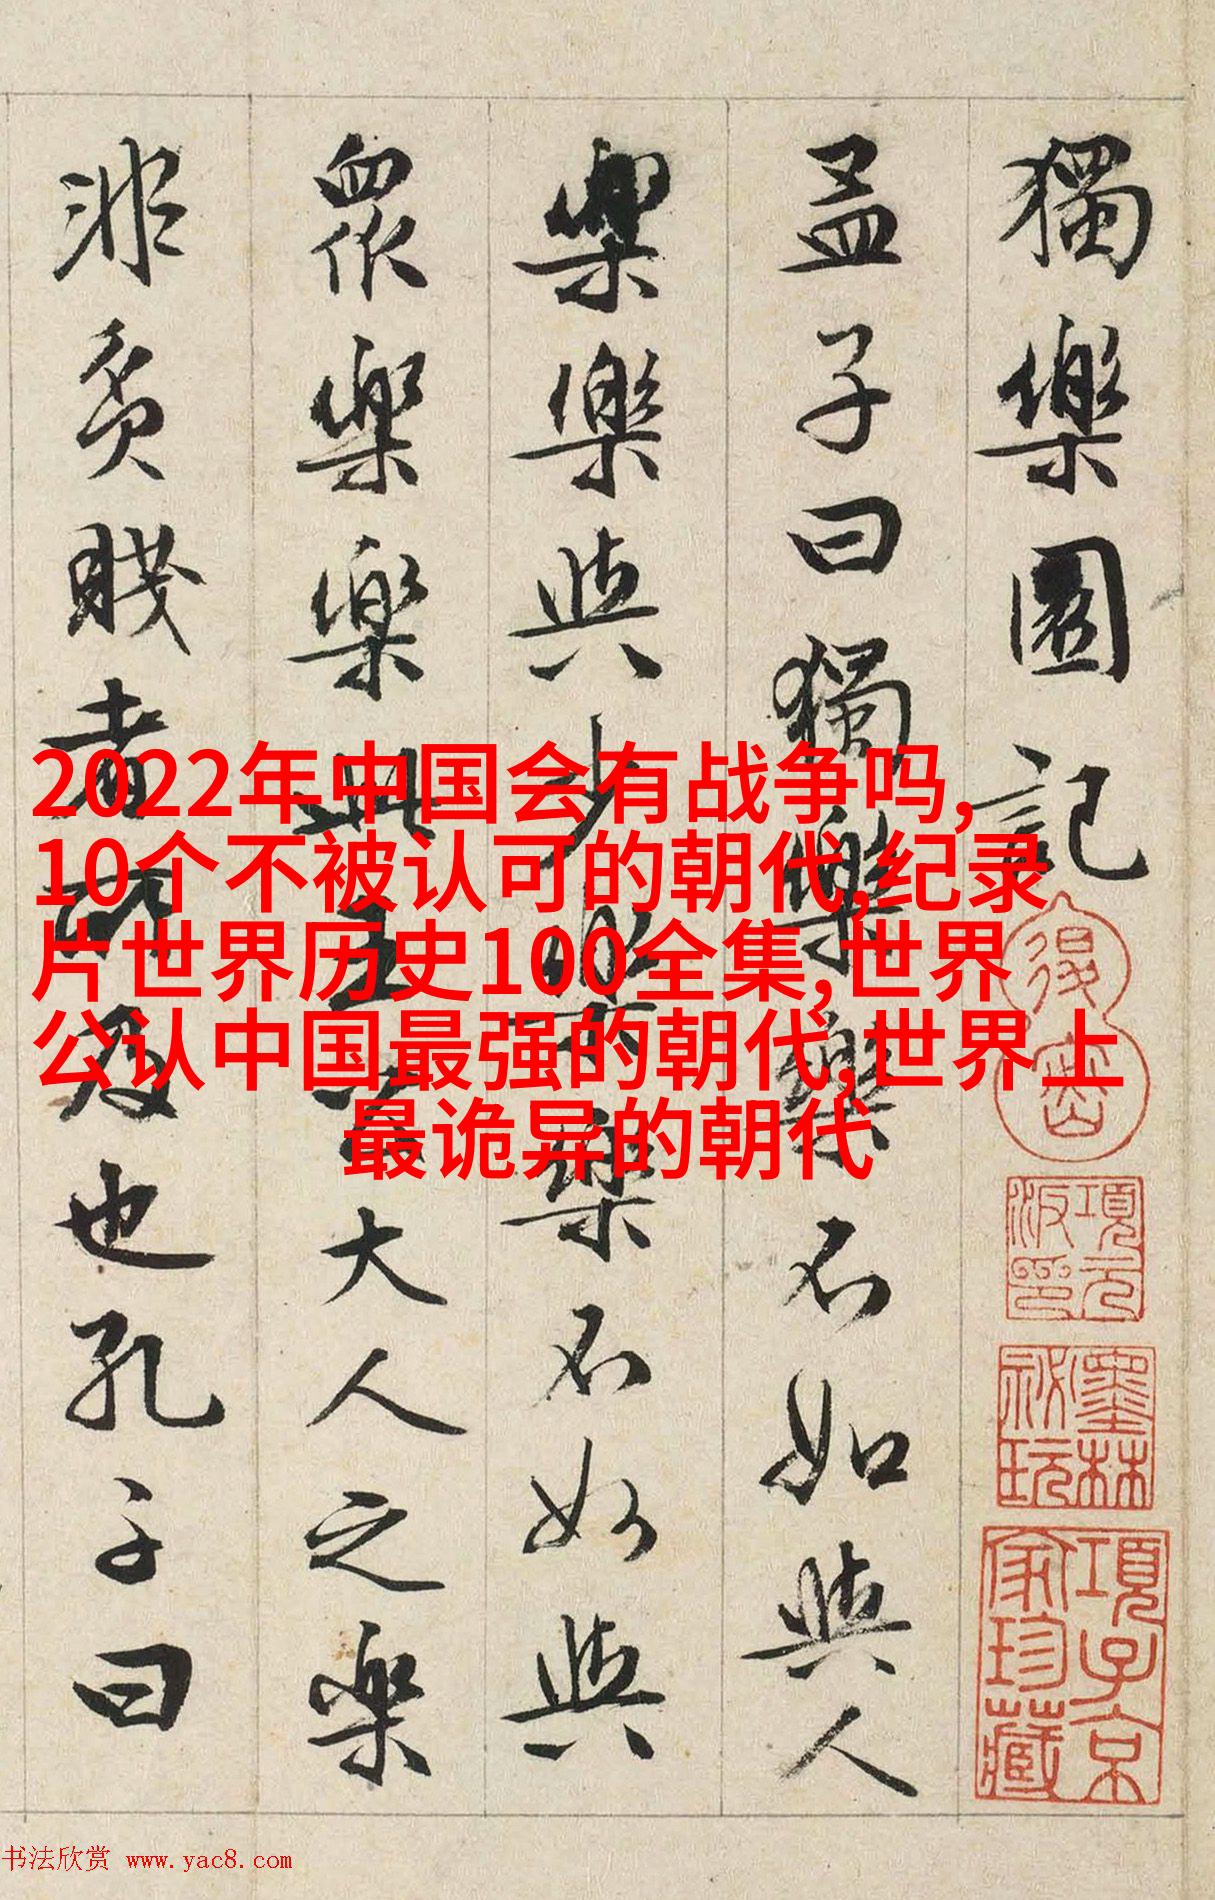 獨樂園記
孟子曰獨樂樂不如與人
樂樂與少樂樂不如與
眾樂樂此王公大人之樂
非貧賤者所及也孔子曰
2022年中国会有战争吗,
10个不被认可的朝代,纪录
片世界历史100全集,世界
公认中国最强的朝代,世界上
最诡异的朝代
項元汴印
墨林秘玩
項子京家珍藏
书法欣赏 www.yac8.com